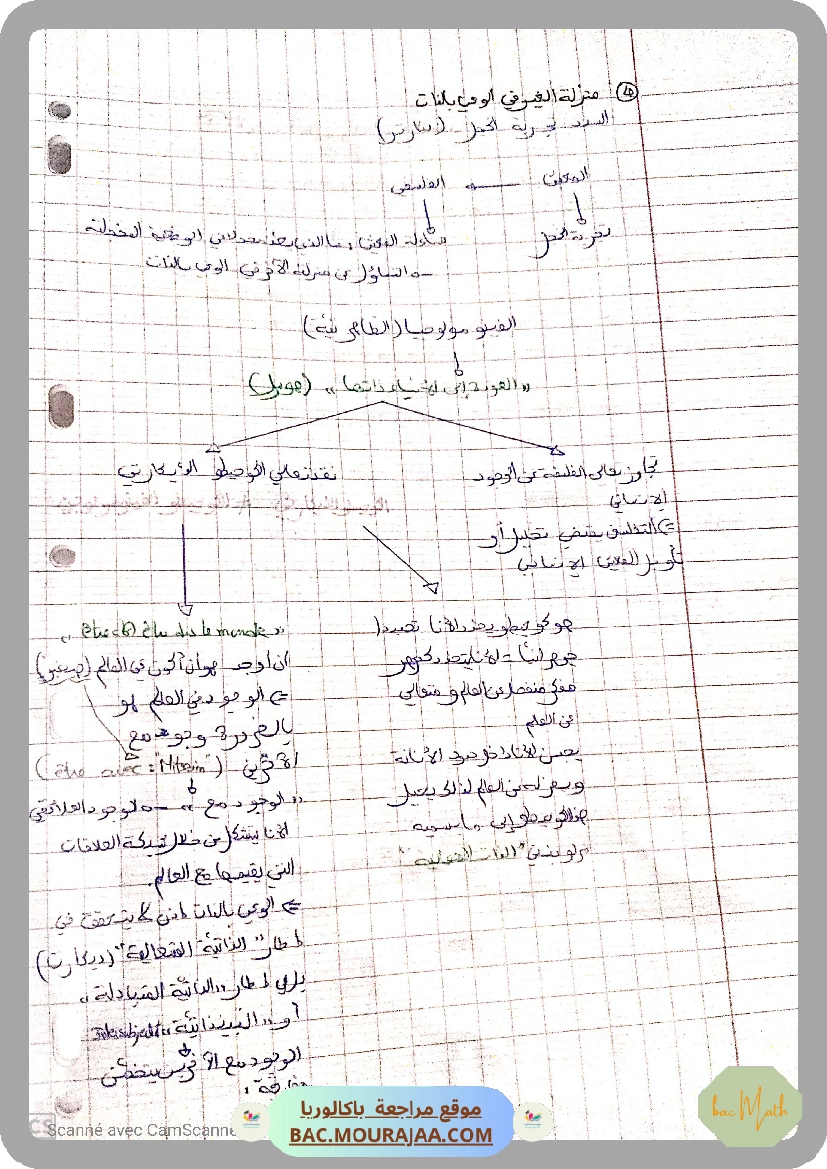 ④ منزلة الغير في الوعي بالذات
السند تجربة الخجل (سارتر)
المعيش ← الفلسفي
تجربة الخجل
مساءلة المعيش، ما الذي يحدث معه لدى الوضعية المخجلة
← التساؤل عن منزلة الآخر في الوعي بالذات
الفينومولوجيا (الظاهراتية)
"العودة إلى الأشياء ذاتها" (هوسرل)
تجاوز تعالي الفلسفة عن الوجود
الإنساني
⇐ التفلسف يقتضي تحليل أو
تأويل المعيش الإنساني
نقد تعالي الكوجيطو الديكارتي
هو كوجيطو يحدد الأنا تحديدا
جوهرانيا = الأنا يتحدد كجوهر
مفكر منفصل عن العالم و متعالي
عن العالم
يحبس الأنا داخل حدود الأنانة
ويعزله عن العالم لذلك يحيل
هذا الكوجيطو إلى ما يسميه
"الذات المعزولة"
"être c'est être ds le monde"
أن أوجد هو أن أكون في العالم (هيدغر)
⇐ الوجود في العالم هو
بالضرورة وجود مع
الآخرين (être avec : "Mitsein")
"الوجود مع" ← الوجود العلائقي
الأنا يتشكل من خلال شبكة العلاقات
التي يقيمها مع العالم.
⇐ الوعي بالذات إذن لا يتحقق في
إطار "الذاتية المتعالية" (ديكارت)
بل في إطار "الذاتية المتبادلة"
أو "البينذاتية"
الوجود مع الآخرين يتضمن
Scanné avec CamScanne
موقع مراجعة باكالوريا
BAC.MOURAJAA.COM
bac Math